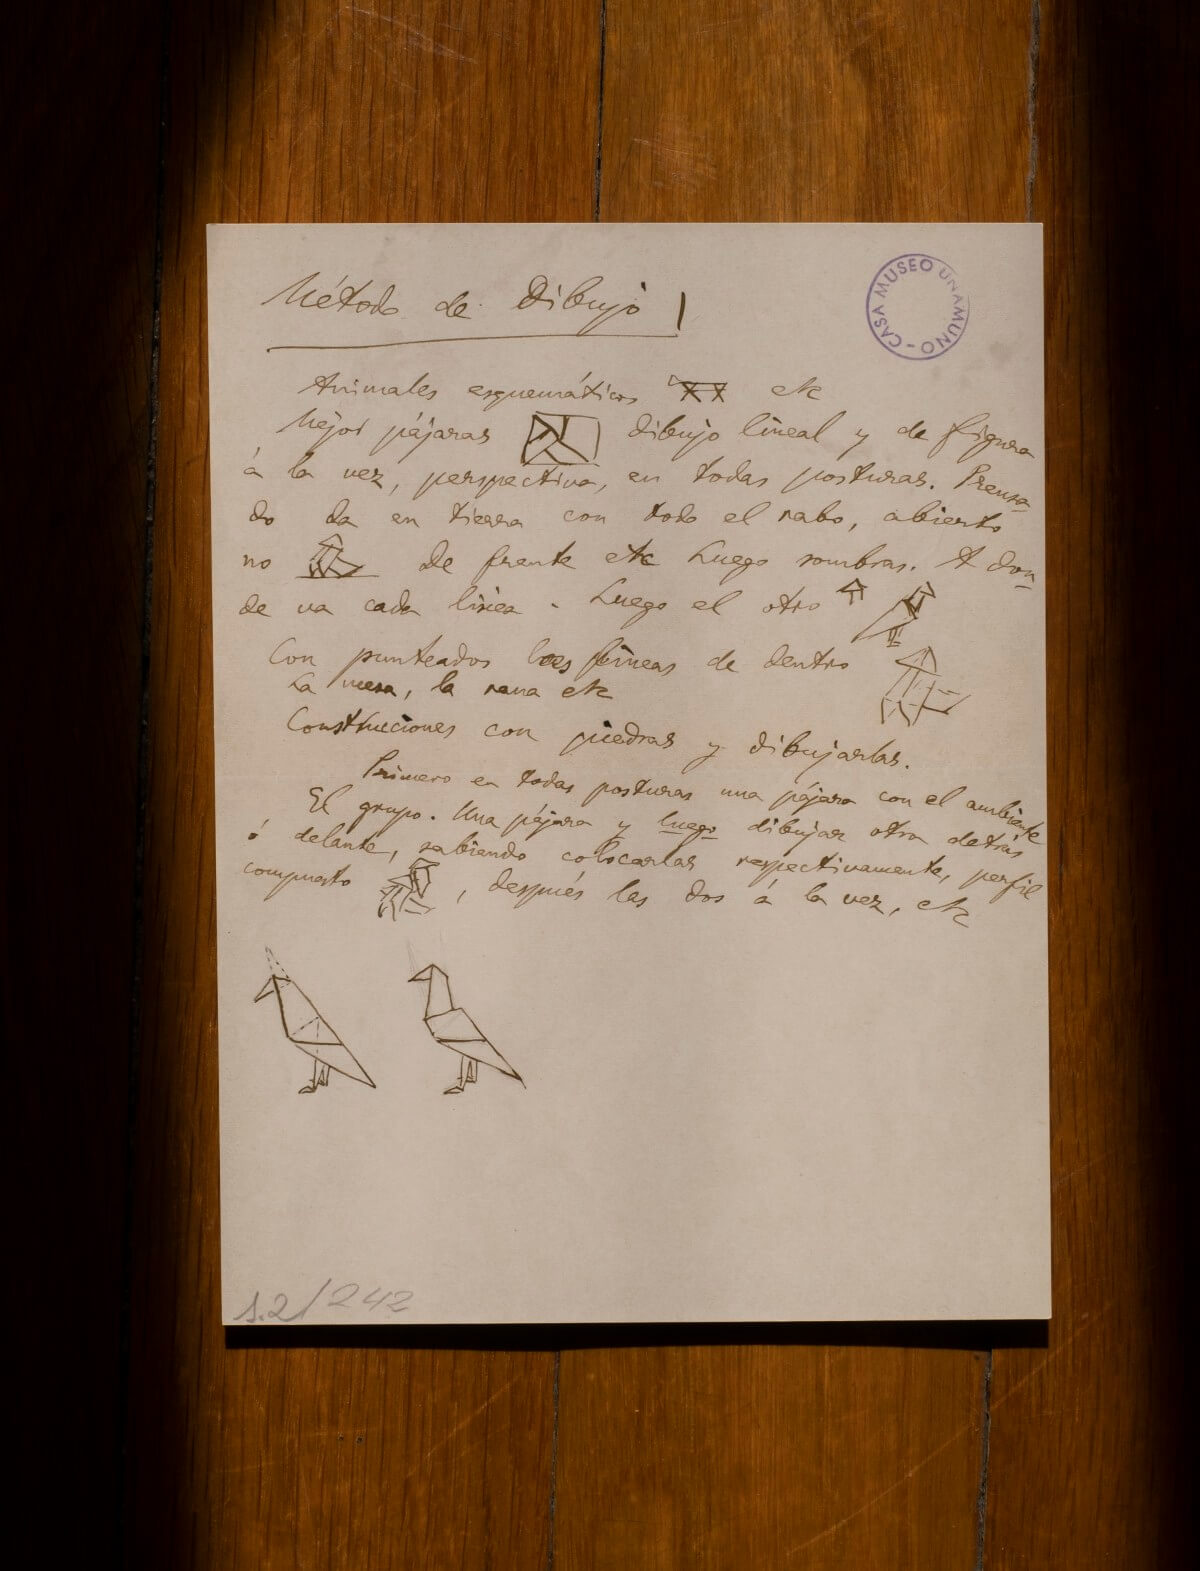 Método de Dibujo
CASA MUSEO UNAMUNO -
Animales esquemáticos etc
Mejor pájaras dibujo lineal y de figura
á la vez, perspectiva, en todas posturas. Prensa-
do da en tierra con todo el rabo, abierto
no de frente etc Luego sombras. A don-
de va cada línea. Luego el otro
Con punteados líneas de dentro
La mesa, la rana etc
Construciones con piedras y dibujarlas.
Primero en todas posturas una pájara con el ambiente
El grupo. Una pájara y luego dibujar otra detrás
ó delante, sabiendo colocarlas respectivamente, perfil
compuesto , después las dos á la vez, etc
1.2/242